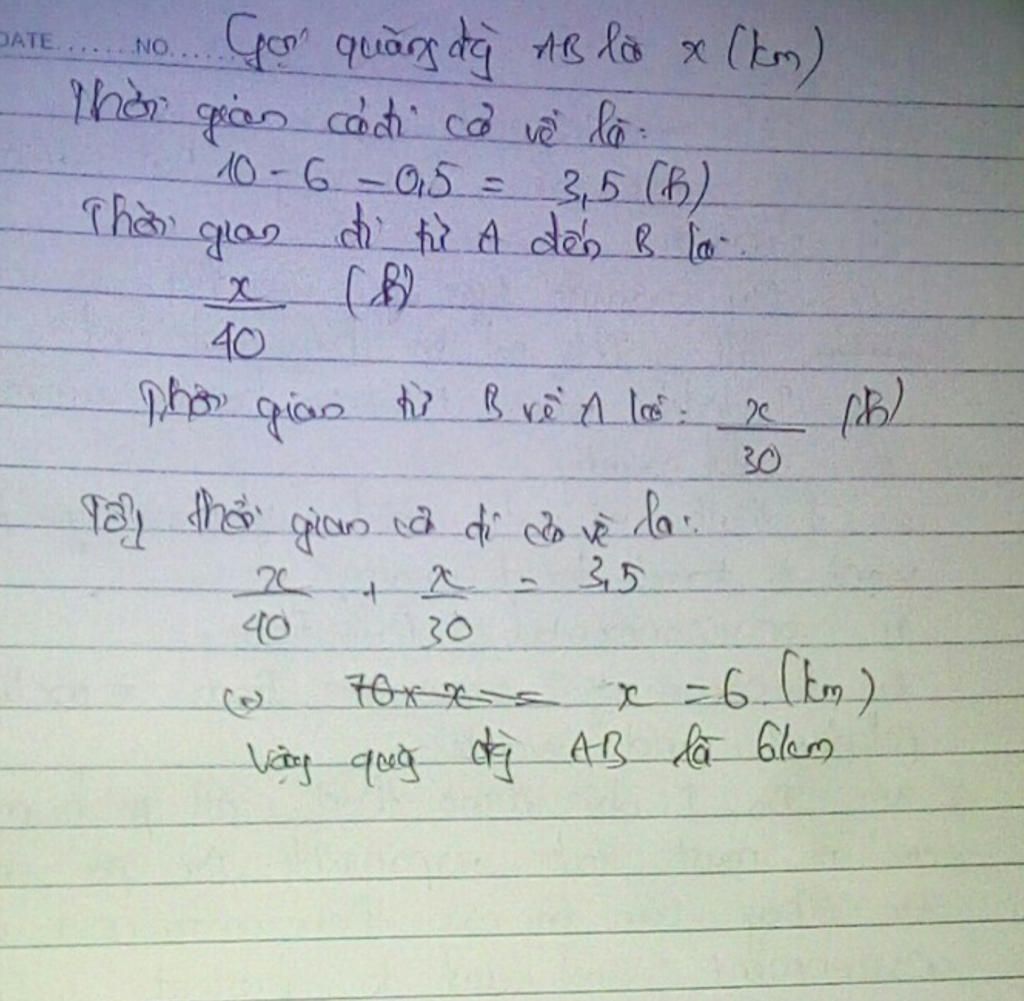 DATE.......NO..... Gọi quãng đg AB là x (km)
Thời gian cả đi cả về là:
10 - 6 - 0,5 = 3,5 (h)
Thời gian đi từ A đến B là:
x/40 (h)
Thời gian từ B về A là: x/30 (h)
Tổg thời gian cả đi cả về là:
x/40 + x/30 = 3,5
<=> 70 x x = x = 6 (km)
Vậy quãg đg AB là 6km